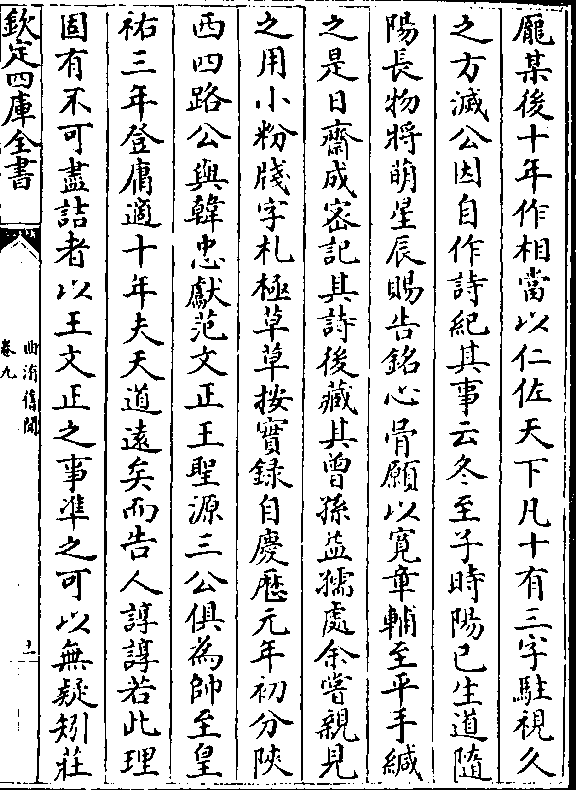 龎某後十年作相當以仁佐天下凡十有三字駐視久
之方滅公因自作詩紀其事云冬至子時陽已生道隨
陽長物將萌星辰賜告銘心骨願以寛章輔至平手緘
之是日齋成宻記其詩後藏其曽孫益孺處余嘗親見
之用小粉牋字札極草草按實録自慶厯元年初分陜
西四路公與韓忠獻范文正王聖源三公俱為帥至皇
祐三年登庸適十年夫天道遠矣而告人諄諄若此理
固有不可盡詰者以王文正之事凖之可以無疑矧莊
欽定四庫全書
曲洧舊聞
卷九
十一